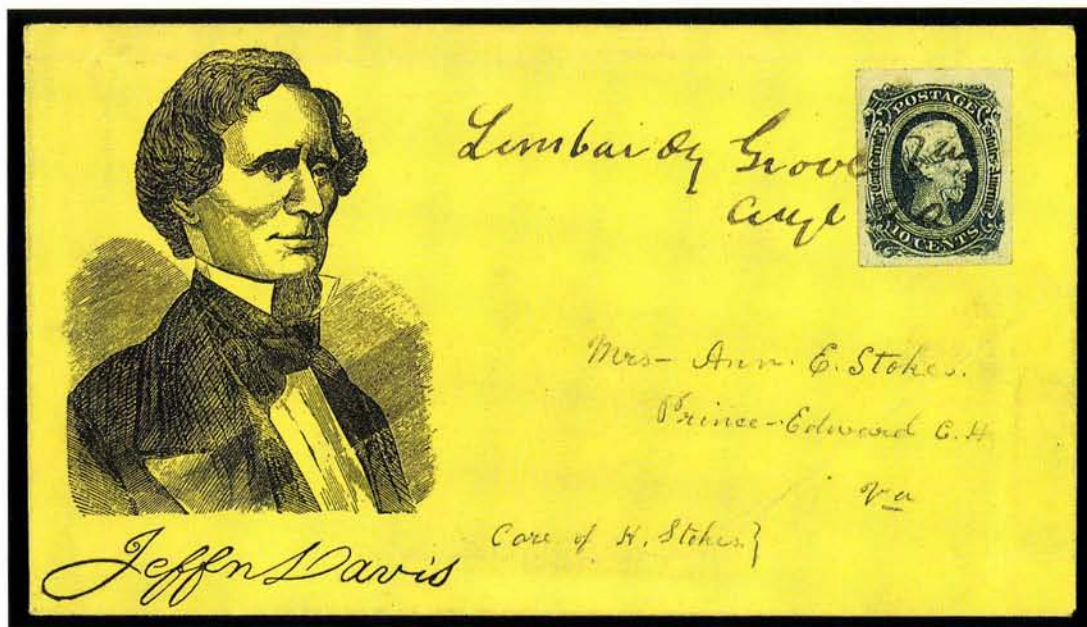 Lombardy Grove Va
Aug
POSTAGE
The Confederate States of America
10 CENTS
Mrs- Ann. E. Stokes.
Prince-Edward C. H
Va
Care of H. Stokes.}
Jeffn Davis